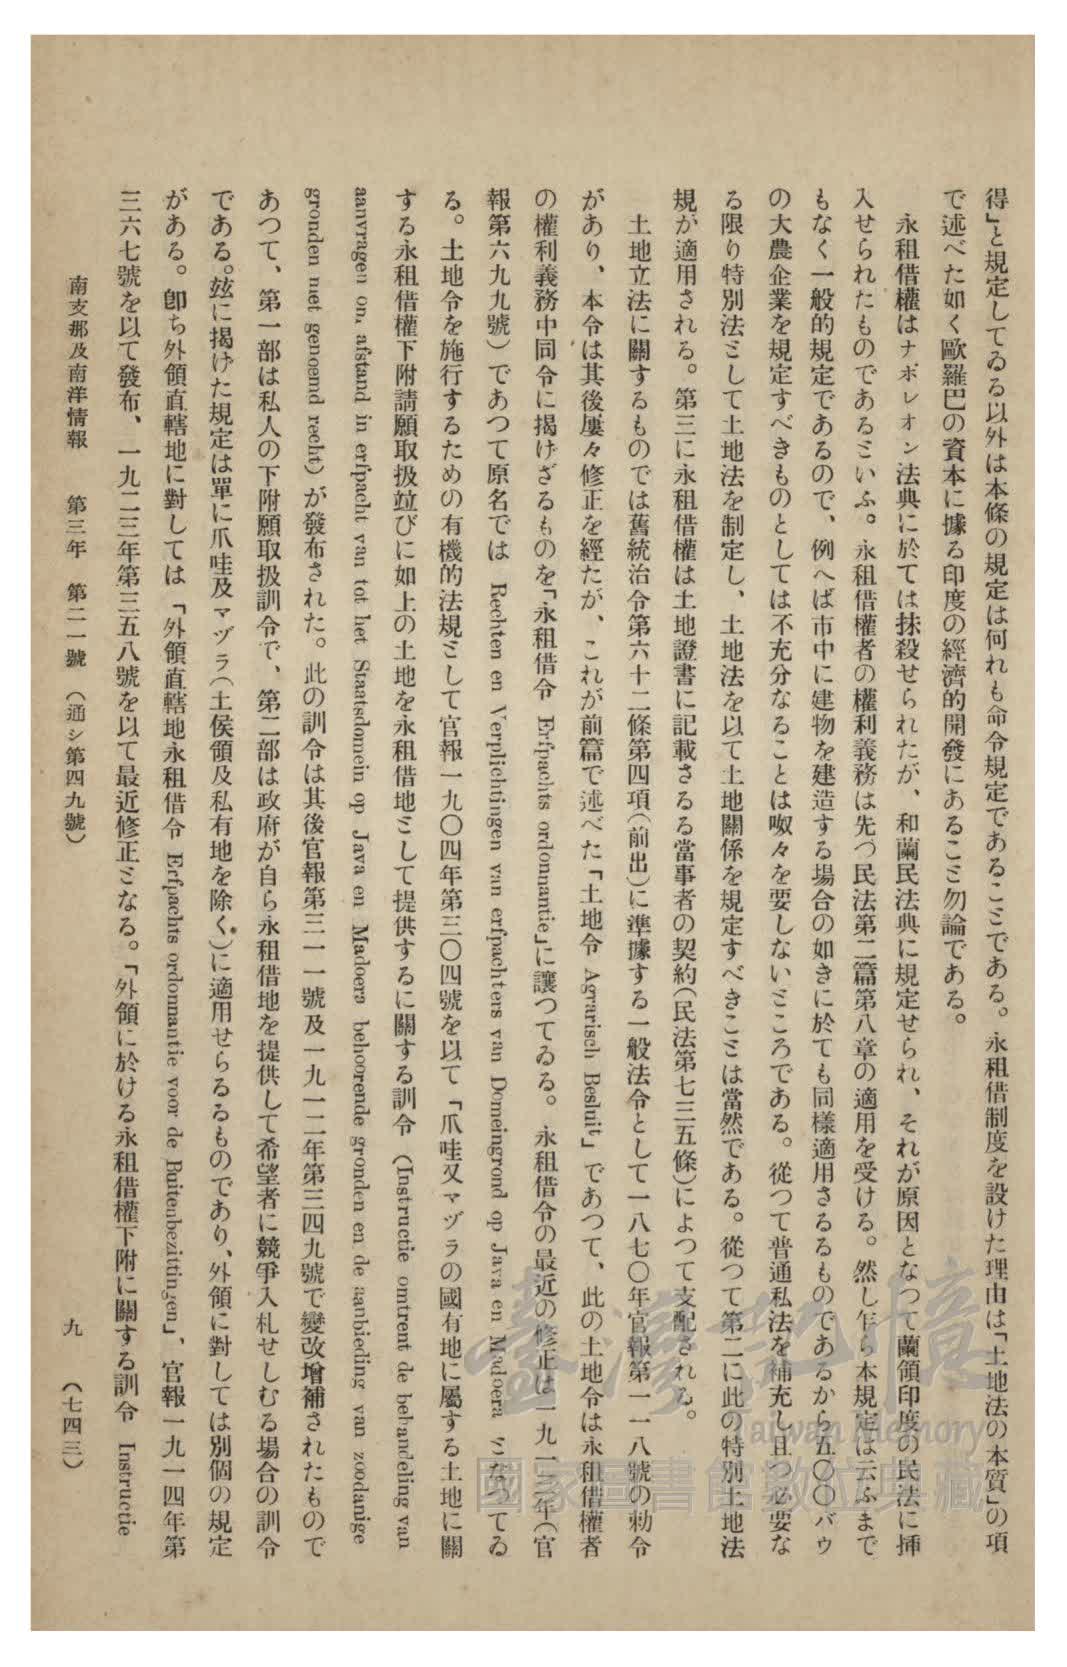 得」と規定してゐる以外は本條の規定は何れも命令規定であることである。永租借制度を設けた理由は「土地法の本質」の項
で述べた如く歐羅巴の資本に據る印度の經濟的開發にあること勿論である。
永租借權はナポレオン法典に於ては抹殺せられたが、和蘭民法典に規定せられ、それが原因となつて蘭領印度の民法に挿
入せられたものであるといふ。永租借權者の權利義務は先づ民法第二篇第八章の適用を受ける。然し乍ら本規定は云ふまで
もなく一般的規定であるので、例へば市中に建物を建造する場合の如きに於ても同樣適用さるるものであるから五〇〇バウ
の大農企業を規定すべきものとしては不充分なることは呶々を要しないところである。從つて普通私法を補充し且つ必要な
る限り特別法として土地法を制定し、土地法を以て土地關係を規定すべきことは當然である。從つて第二に此の特別土地法
規が適用される。第三に永租借權は土地證書に記載さる當事者の契約(民法第七三五條)によつて支配される。
土地立法に關するものでは舊統治令第六十二條第四項(前出)に準據する一般法令として一八七〇年官報第一一八號の勅令
があり、本令は其後屢々修正を經たが、これが前篇で述べた「土地令 Agrarisch Besluit」であつて、此の土地令は永租借權者
の權利義務中同令に揭げざるものを「永租借令 Erfpachts ordonnantie」に讓つてゐる。永租借令の最近の修正は一九一三年(官
報第六九九號)であつて原名では Rechten en Verplichtingen van erfpachters van Domeingrond op Java en Madoera となつてゐ
る。土地令を施行するための有機的法規として官報一九〇四年第三〇四號を以て「爪哇又マヅラの國有地に屬する土地に關
する永租借權下附請願取扱竝びに如上の土地を永租借地として提供するに關する訓令 (Instructie omtrent de behandeling van
aanvragen om afstand in erfpacht van tot het Staatsdomein op Java en Madoera behoorende gronden en de aanbieding van zoodanige
gronden met genoemd recht) が發布された。此の訓令は其後官報第三一一號及一九一二年第三四九號で變改增補されたもので
あつて、第一部は私人の下附願取扱訓令で、第二部は政府が自ら永租借地を提供して希望者に競爭入札せしむる場合の訓令
である。玆に揭げた規定は單に爪哇及マヅラ(土侯領及私有地を除く)に適用せらるるものであり、外領に對しては別個の規定
がある。卽ち外領直轄地に對しては「外領直轄地永租借令 Erfpachts ordonnantie voor de Buitenbezittingen」、官報一九一四年第
三六七號を以て發布、一九二三年第三五八號を以て最近修正となる。「外領に於ける永租借權下附に關する訓令 Instructie
南支那及南洋情報 第三年 第二一號(通シ第四九號) 九 (七四三)
臺灣記憶
Taiwan Memory
國家圖書館數位典藏